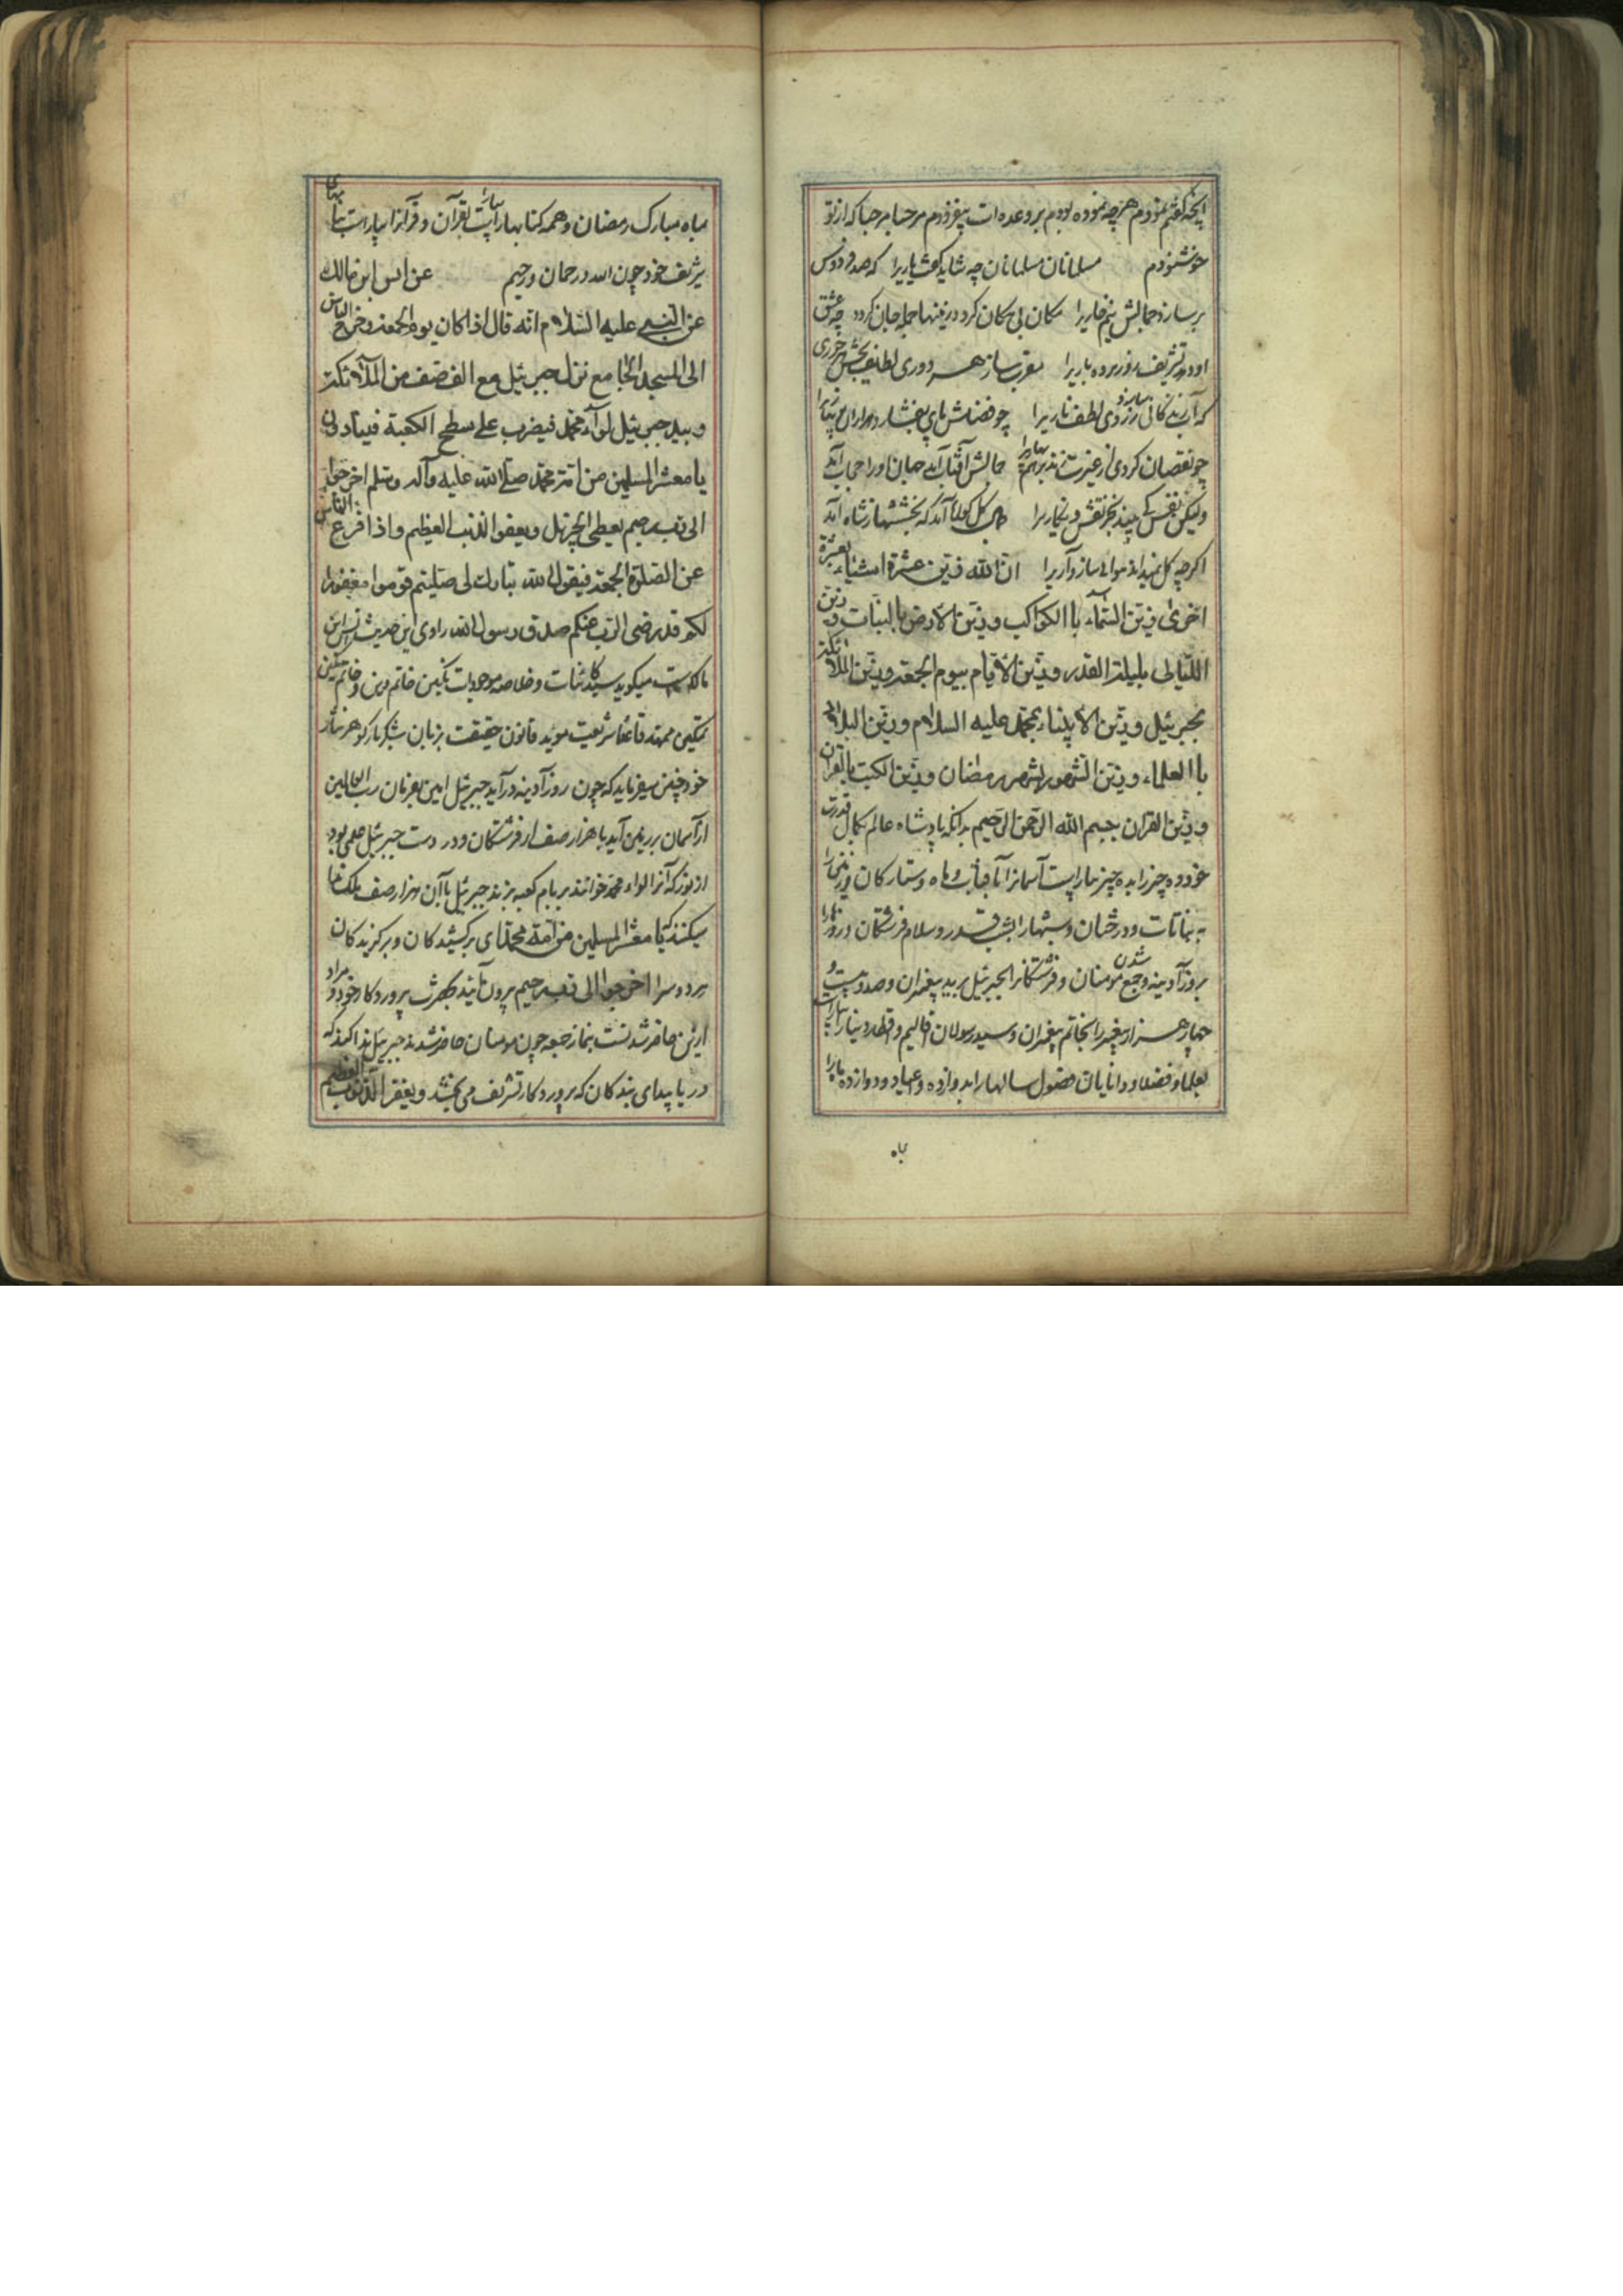 آنچه گفتم نمودم هرچه نموده بودم بر وعده ات بیفزودم مرحبا مرحبا که از تو
خوشنودم مسلمانان مسلمانان چه شاید گفت یاریرا که صد فردوس
بر سازد جمالش نیم خاریرا مکان لا مکان گردد زمینها جمله جان گردد چه عشق
او دهد تشریف روز برده باریرا
که آب زندگانی لطف ناریرا چو فضلش پای بفشارد
چو نقصان کردی از غیرت جمالش آفتاب آمد جهان او را حجاب آمد
ولیکن نقش کی بیند بجز نقش و نگاریرا کل آمد که بخششها ز شاه آمد
اکرچه کل نمیداند هوای سازواریرا ان الله زین عشرة اشیاء بعشرة
اخری زین السماء باالکواکب و زین الارض بالنبات و زین
اللیالی بلیلة القدر و زین الایام بیوم الجمعة و زین الملائکة
بجبرئیل و زین الانبیاء بمحمد علیه السلام و زین البلاد
باالعلماء و زین الشهور بشهر رمضان و زین الکتب بالقرآن
و زین القران ببسم الله الرحمن الرحیم بدانکه پادشاه عالم بکمال قدرت
خود ده چیز را بده چیز بیاراست آسمانرا بآفتاب و ماه و ستارکان و زمین را
به نباتات و درختان و شبهارا بشب قدر و سلام فرشتکان و روزها را
بروز آدینه و جمع شدن مومنان و فرشتکانرا بجبرئیل برید پیغمبران و صد و بیست و
چهار هزار پیغمبر را بخاتم پیغمبران و سید رسولان و اقلیم و دنیا را بیاراست
بعلما و فضلا و دانایان فصول سالها را بدوازده و عیاد و دوازده ماه را
بماه
بماه مبارک رمضان و همه کتابها را بیاراست بقرآن و قرآنرا بیاراست بنامهای
شریف خود چون الله و رحمان و رحیم عن انس ابن مالک
عن النبی علیه السلام انه قال اذا کان یوم الجمعة و خرج الناس
الی المسجد الجامع نزل جبرئیل مع الف صف من الملائکة
و بید جبرئیل لوآء محمد فیضرب علی سطح الکعبة فینادی
یا معشر المسلمین من امة محمد صلی الله علیه وآله وسلم اخرجوا
الی رب رحیم یعطی الجزیل و یعفو الذنب العظیم و اذا فرغ الناس
عن الصلوة الجمعة فیقول الله تبارک لی صلیتم قوموا مغفورا
لکم قد رضی الرب عنکم صدق رسول الله راوی این حدیث انس ابن
مالکست میکوید سید کائنات و خلاصه موجودات نکین خاتم دین و خاتم نکین
تمکین ممهد قاعدۀ شریعت موید قانون حقیقت بزبان شکر بار کوهر نثار
خود چنین میفرماید که چون روز آدینه درآید جبرئیل امین بفرمان رب العالمین
از آسمان بر زمین آید با هزار صف از فرشتکان و در دست جبرئیل علمی بود
از نور که آنرا لواء محمد خوانند بر بام کعبه بزند جبرئیل باآن هزار صف ملک ندا
میکنند که یا معشر المسلمین من امة محمد ای برکشیدکان و برکزیدکان
هر دو سرا اخرجوا الی رب رحیم بیرون آئید بحضرت پروردکار خود و مراد
ازین حاضر شدنست بنماز جمعه چون مومنان حاضر شدند جبرئیل ندا کند که
دریابید ای بندکان که پروردکار تشریف می بخشد و یغفر الذنوب العظیم